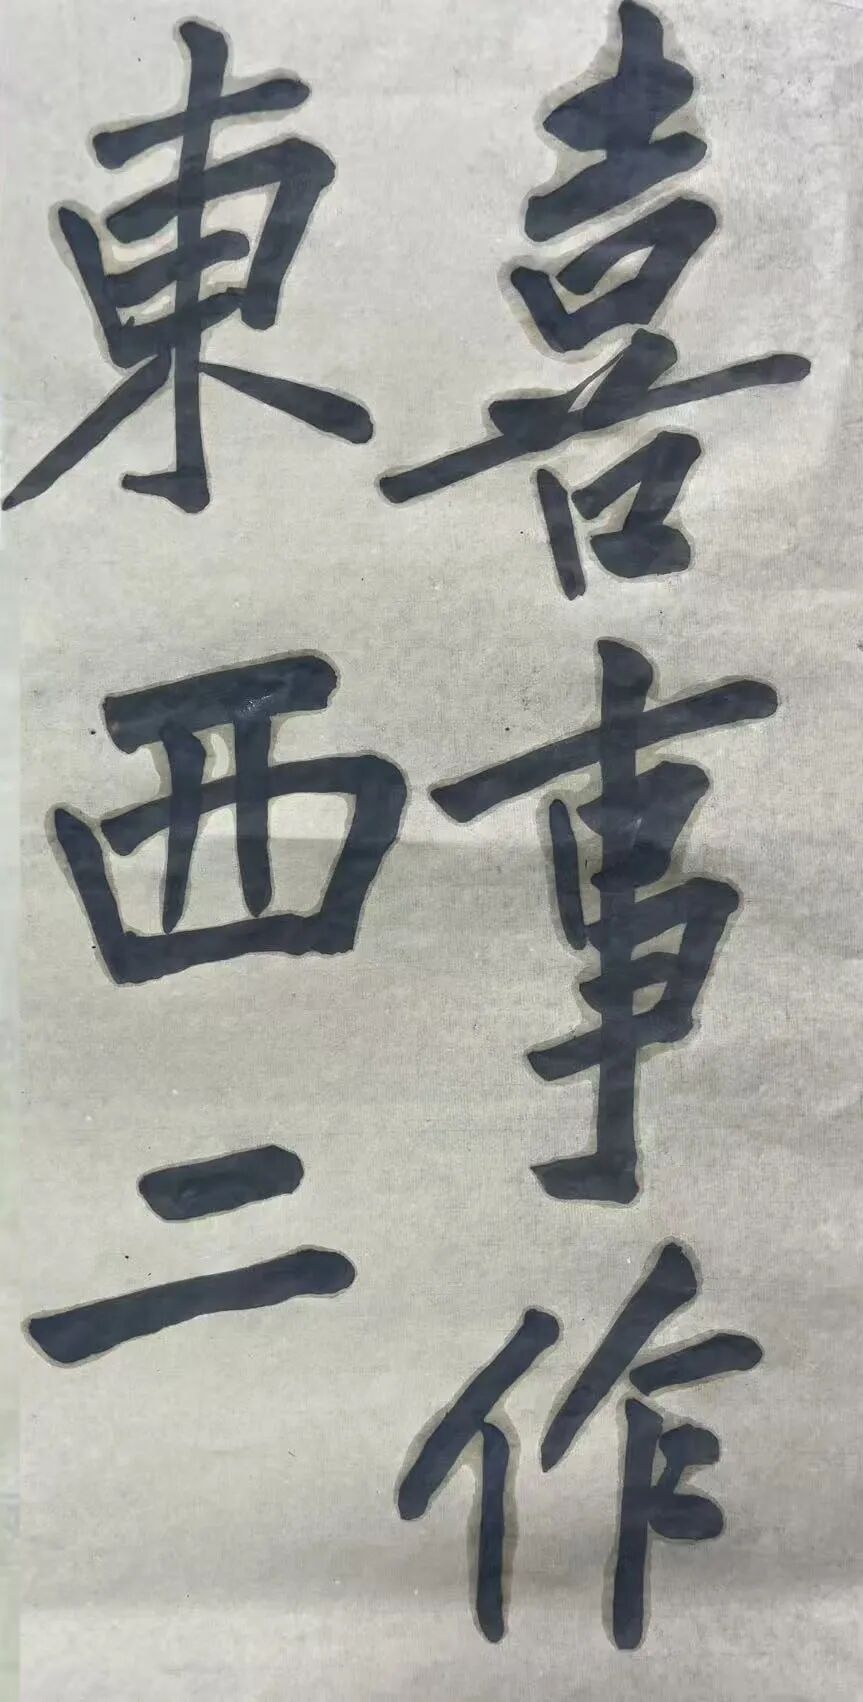 喜事作
東西二